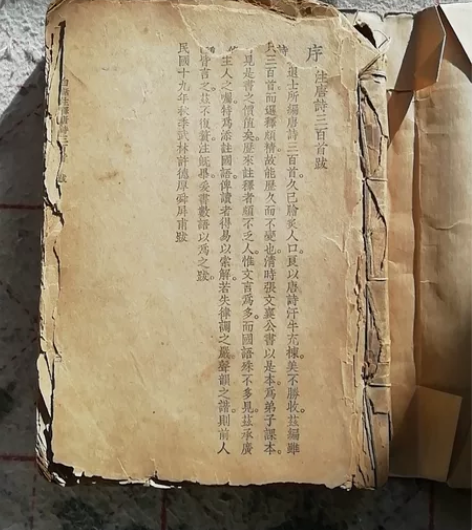 序 注唐詩三百首跋
退士所編唐詩三百首。久已膾炙人口。良以唐詩汗牛充棟。美不勝收。茲編雖
三百首而選釋頗精。故能歷久而不變也。清時張文襄公書以是本爲弟子課本。
見是書之價値矣。歷來註釋者頗不乏人。惟文言爲多。而國語殊不多見。茲承廣
生人之囑。特爲添註國語。俾讀者得易以索解。若失律調之嚴。聲韻之諧。則前人
皆言之。茲不復贅。注旣畢。爰書數語以爲之跋。
民國十九年秋季武林許德厚舜屛甫跋
註釋唐詩三百首 跋